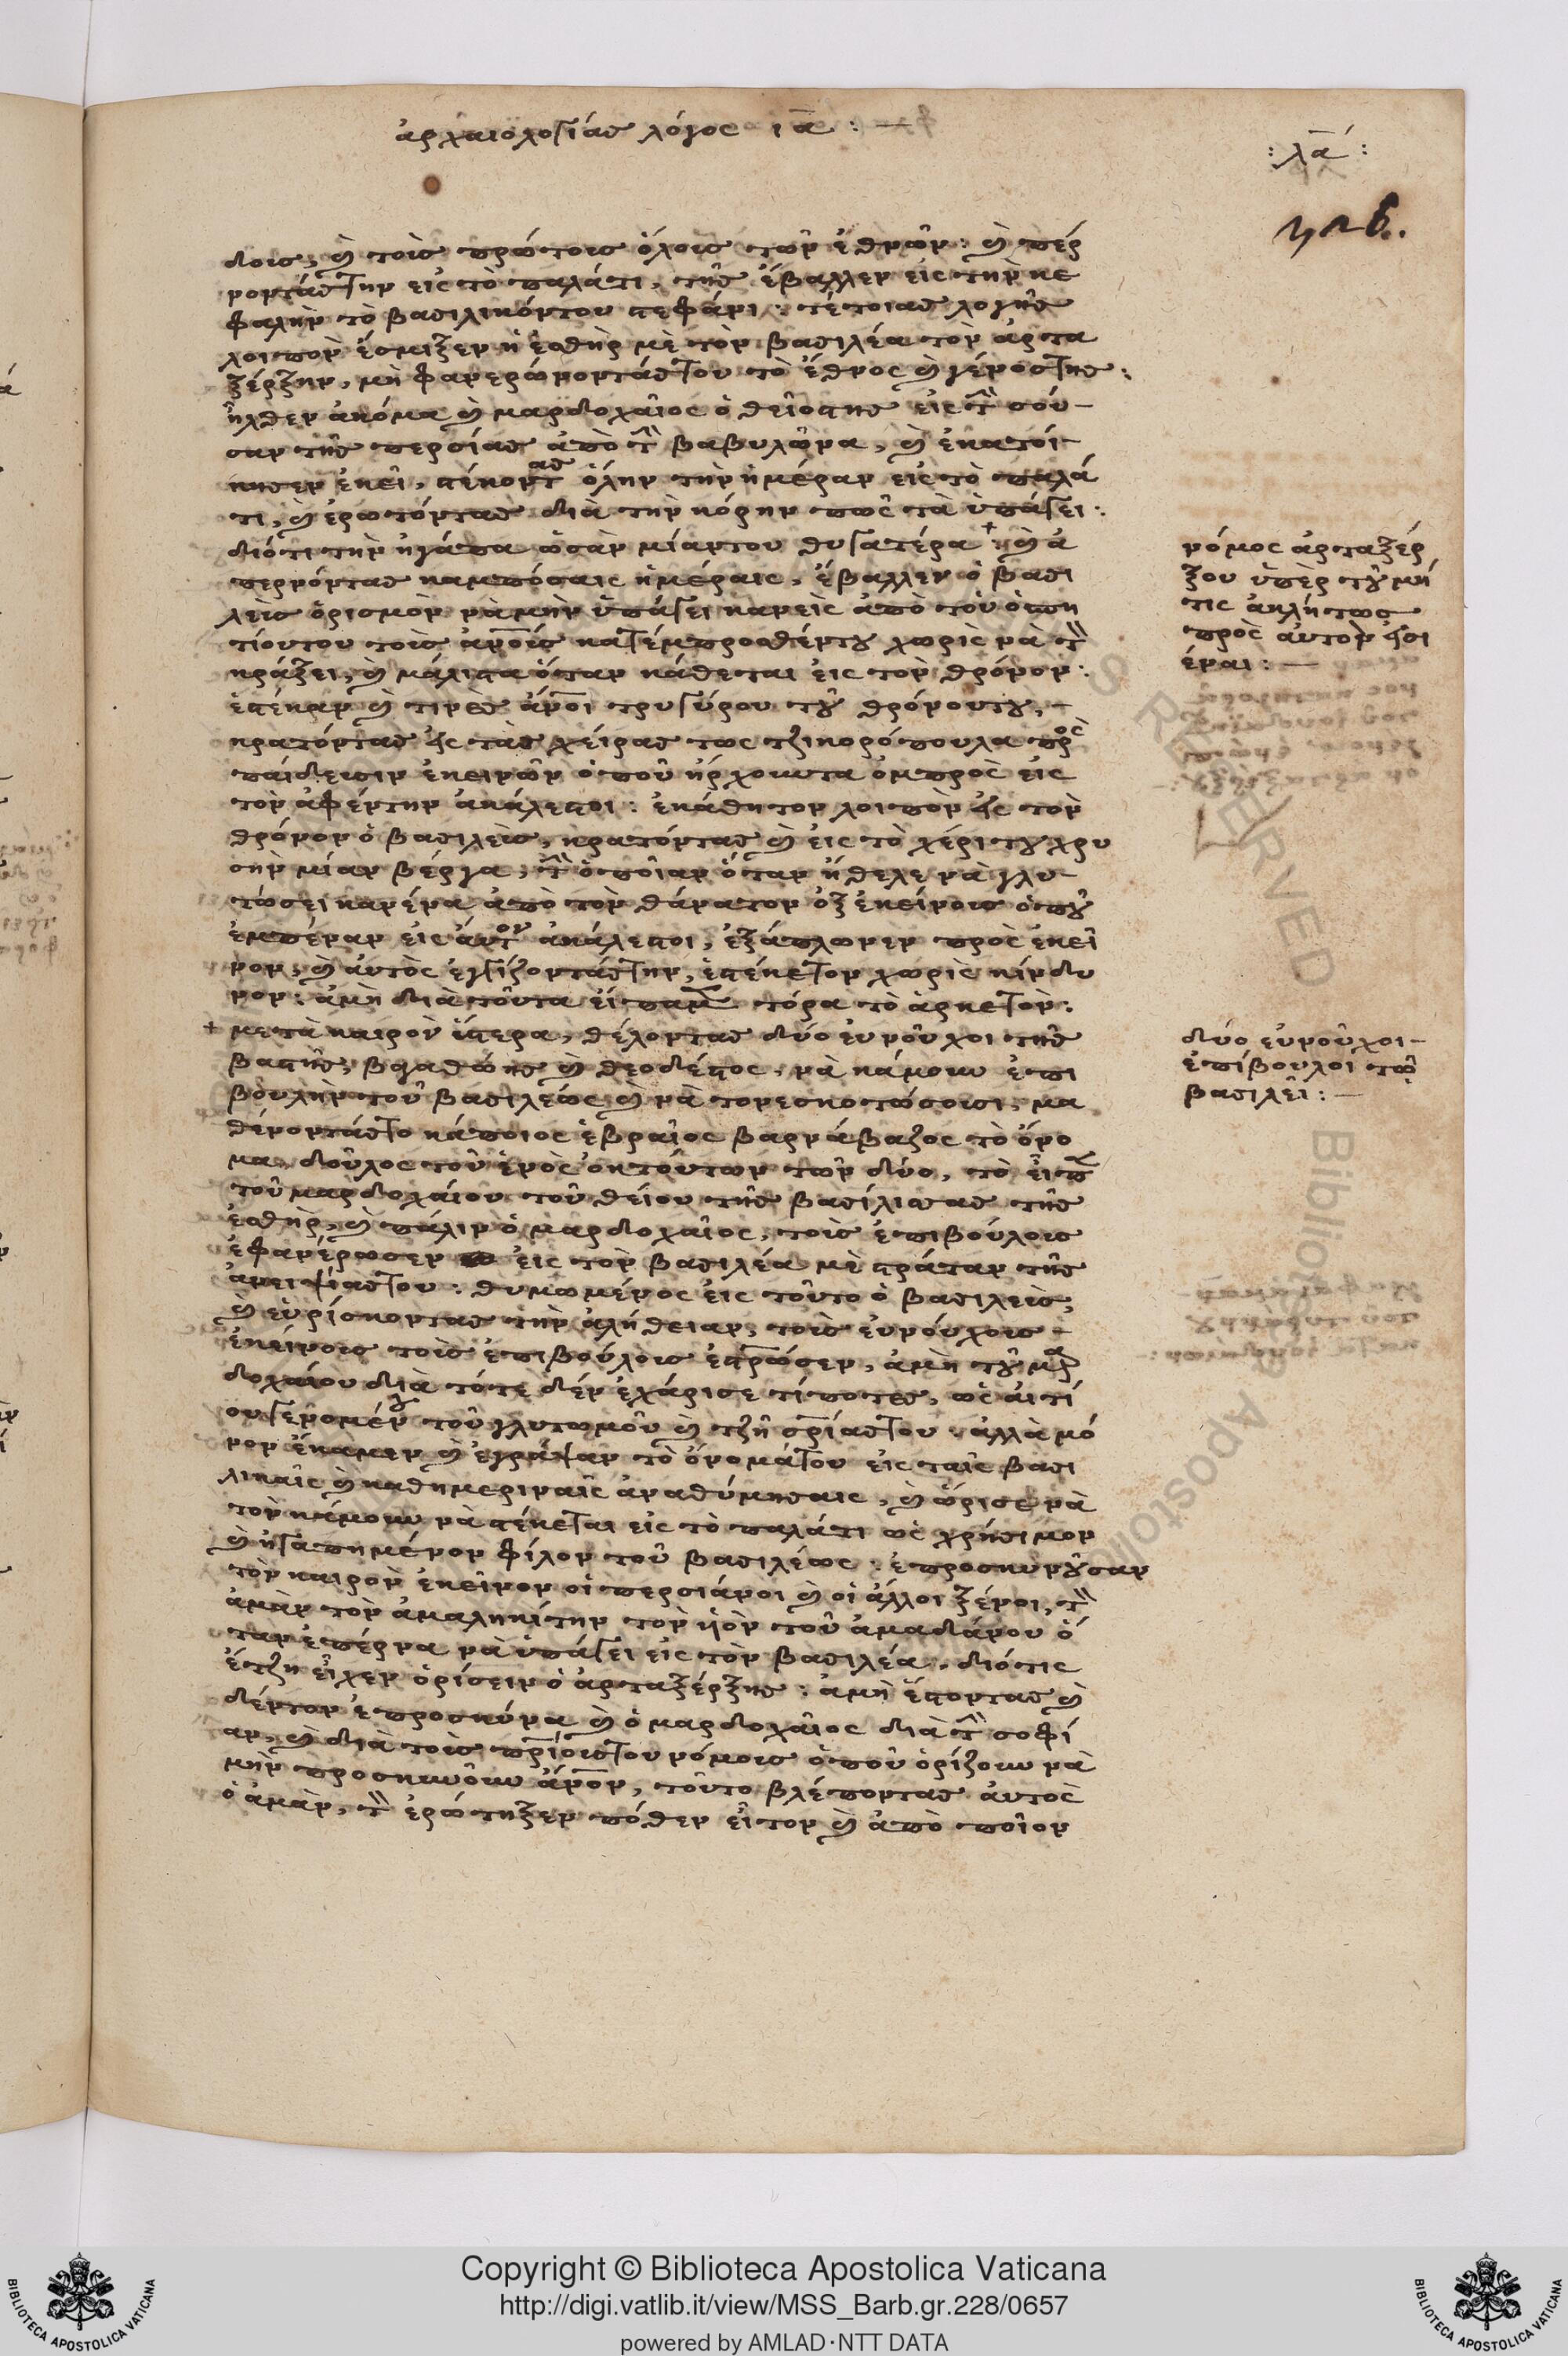 ἀρχαιολογίας λόγος ια :—
: λα :
δοις, καὶ τοὶς πρώτοις ὁλοὶς τῶν ἐθνῶν: καὶ πέρ
νοντάστην εἰς τὸ παλάτι, τῆς ἔβαλλεν εἰς τὴν κε
φαλὴν τὸ βασιλικόντου στεφάνι: τέτοιας λογῆς
λοιπὸν ἔσμιξεν ἡ ἐσθὴρ μὲ τὸν βασιλέα τὸν ἀρτα
ξέρξην, μὴ φανερώνοντάστου τὸ ἔθνος καὶ γένοςτης:
ἦλθεν ἀκόμα καὶ μαρδοχαῖος ὁ θεῖοςτης εἰς τὴν σού-
σαν τῆς περσίας ἀπὸ τὴν βαβυλῶνα, καὶ ἐκατοί-
κησεν ἐκεῖ, στέκοντας ὅλην τὴν ἡμέραν εἰς τὸ παλά
τι, καὶ ἐρωτόντας διὰ τὴν κόρην πῶς τὰ ὑπάγει:
διότι τὴν ἠγάπα ὡσὰν μίαντου θυγατέρα + καὶ ἀ
περνόντας καμπόσαις ἡμέραις, ἔβαλλεν ὁ βασι
λεὶς ὁρισμὸν νὰ μὴν ὑπάγει κανεὶς ἀπὸ τοὺ ὁσπη
τίουτου τοὶς ἀνοὶς κατέμπροσθέντου χωρὶς νὰ τὸν
κράξει, καὶ μάλιστα ὅταν κάθεται εἰς τὸν θρόνον:
ἐστέκαν καὶ τινὲς ἄνοι τρυγύρου τοῦ θρόνουτου,
κρατόντας εἰς τὰς χείρας τως τζικορόπουλα πρὸς
παίδευσιν ἐκεινῶν ὁποῦ ἤρχουντα ὀμπρὸς εἰς
τὸν ἀφέντην ἀκάλεστοι: ἐκάθητον λοιπὸν εἰς τὸν
θρόνον ὁ βασιλεὶς, κρατόντας καὶ εἰς τὸ χέρι του χρυ
σὴν μίαν βέργα, τὴν ὁποῖαν ὅταν ἤθελε νὰ γλυ-
τώσει κανένα ἀπὸ τὸν θάνατον ὀξ ἐκείνοις ὁποῦ
ἐμπέναν εἰς αὐτὸν ἀκάλεστοι, ἐξάπλωνεν πρὸς ἐκεῖ
νον, καὶ αὐτὸς ἐγγίζοντάστην, ἐστέκετον χωρὶς κίνδυ
νον: ἀμὴ διὰ τοῦτα εἴπαμεν τόρα τὸ ἀρκετόν:
+ μετὰ καιρὸν ὕστερα, θέλοντας δύο εὐνοῦχοι τῆς
βαστῆς, βγαθώης καὶ θεοδέστος, νὰ κάμουν ἐπι
βουλὴν τοῦ βασιλέως καὶ νὰ τονεσκοτώσουσι, μα
θένοντάστο κάποιος ἑβραῖος βαρνάβαζος τὸ ὄνο
μα, δοῦλος τοῦ ἑνὸς ὀκ τούτων τῶν δύο, τὸ εἶπεν
τοῦ μαρδοχαίου τοῦ θείου τῆς βασίλισσας τῆς
ἐσθὴρ, καὶ πάλιν ὁ μαρδοχαῖος, τοὶς ἐπιβούλοις
ἐφανέρωσεν εἰς τὸν βασιλέα μὲ στράταν τῆς
ἀνειψιάςτου: θυμωμένος εἰς τοῦτο ὁ βασιλεὶς,
καὶ εὑρίσκοντας τὴν ἀλήθειαν, τοὶς εὐνούχοις
ἐκείνοις τοὶς ἐπιβούλοις ἐστρώσεν, ἀμὴ τοῦ μαρ
δοχαίου διὰ τότε δὲν ἐχάρισε τίποτες, ὡς αἰτί
ου γενομένου τοῦ γλυτωμοῦ καὶ τζῆ σρίαςτου: ἀλλὰ μό
νον ἔκαμεν καὶ ἐγράψαν τὸ ὄνομάτου εἰς ταῖς βασι
λικαῖς καὶ καθημεριναῖς ἀναθύμησαις, καὶ ὥρισε νὰ
τὸν κάμουν νὰ στέκεται εἰς τὸ παλάτι ὡς χρήσιμον
καὶ ἠγαπημένον φίλον τοῦ βασιλέως: ἐπροσκυνοῦσαν
τὸν καιρὸν ἐκεῖνον οἱ περσιάνοι καὶ οἱ ἄλλοι ξένοι, τὸν
ἀμὰν τὸν ἀμαληκίτην τὸν ὑὸν τοῦ ἀμαδάνου ὅ
ταν ἐπέρνα νὰ ὑπάγει εἰς τὸν βασιλέα, διότις
ἔτζη εἶχεν ὁρίσειν ὁ ἀρταξέρξης: ἀμὴ ἔστοντας καὶ
δέντον ἐπροσκύνα καὶ ὁ μαρδοχαῖος διὰ τὴν σοφί
αν, καὶ διὰ τοὶς πρίοιςτου νόμοις ὁποῦ ὁρίζουν νὰ
μὴν προσκυνοῦν ἄνον, τοῦτο βλέποντας αὐτὸς
ὁ ἀμὰν, τὸν ἐρώτηξεν πόθεν εἶτον καὶ ἀπὸ ποῖον
νόμος ἀρταξέρ
ξου ὑπὲρ τοῦ μή
τις ἀκλήτως
πρὸς αὐτὸν εἰσι
έναι:—
δύο εὐνοῦχοι-
ἐπίβουλοι τῷ
βασιλεῖ:—
Copyright © Biblioteca Apostolica Vaticana
http://digi.vatlib.it/view/MSS_Barb.gr.228/0657
powered by AMLAD·NTT DATA
BIBLIOTECA APOSTOLICA VATICANA
BIBLIOTECA APOSTOLICA VATICANA